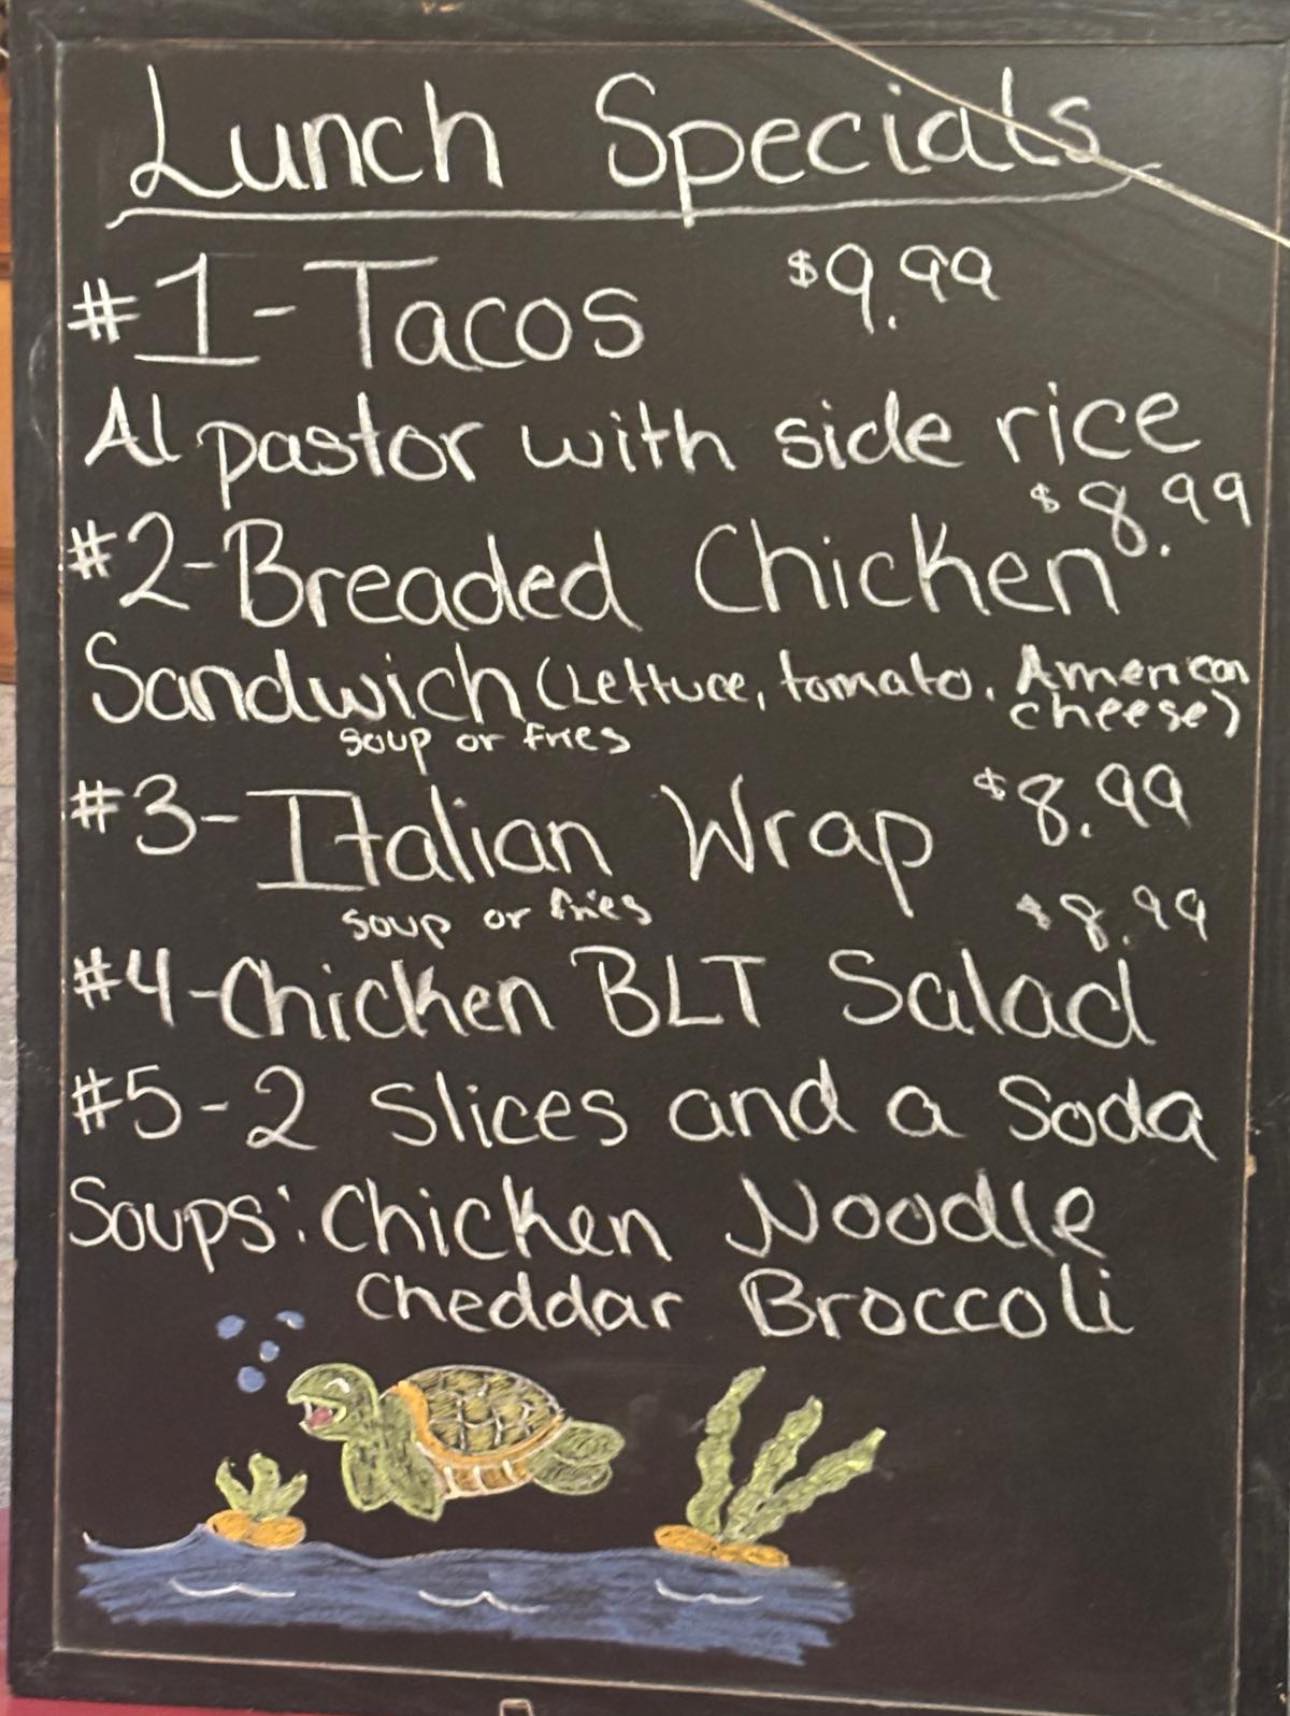 Lunch Specials
#1-Tacos $9.99
Al pastor with side rice
$8.99
#2-Breaded Chicken
Sandwich (Lettuce, tomato, American
cheese)
soup or fries
#3-Italian Wrap $8.99
soup or fries
$8.99
#4-Chicken BLT Salad
#5-2 slices and a Soda
Soups: Chicken Noodle
Cheddar Broccoli